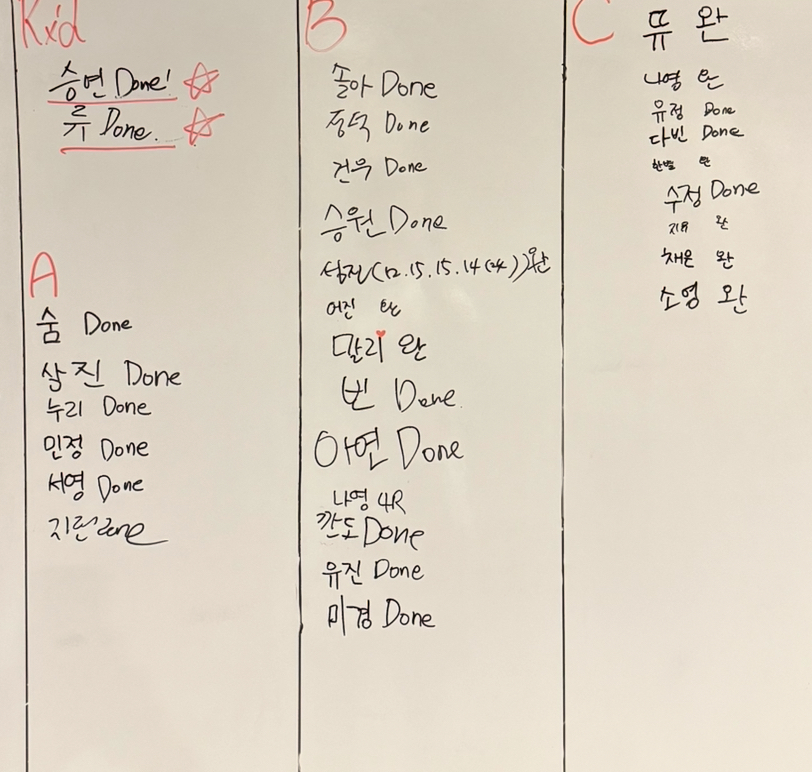 Kxd
승연 Done!
류 Done.
A
숨 Done
삼진 Done
누리 Done
민정 Done
서영 Done
지린 Done
B
졸아 Done
Done
건우 Done
승원 Done
(12.15.15.14(24))완
어진 완
말리 완
빈 Done
아연 Done
나영 4R
깐도 Done
유진 Done
미경 Done
C
뮤 완
나영 완
유정 Done
다빈 Done
한별 완
수정 Done
지유 완
채은 완
소영 완